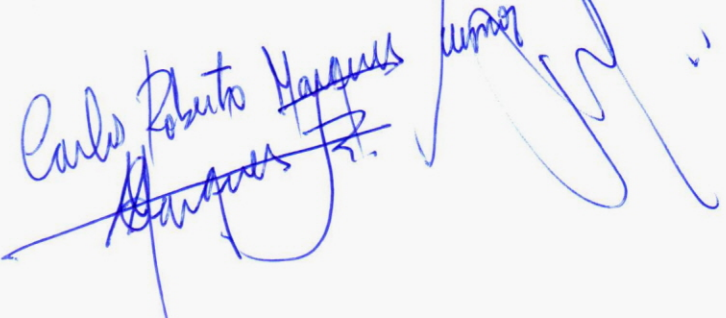 Carlos Roberto Marques Junior
Marques Jr.